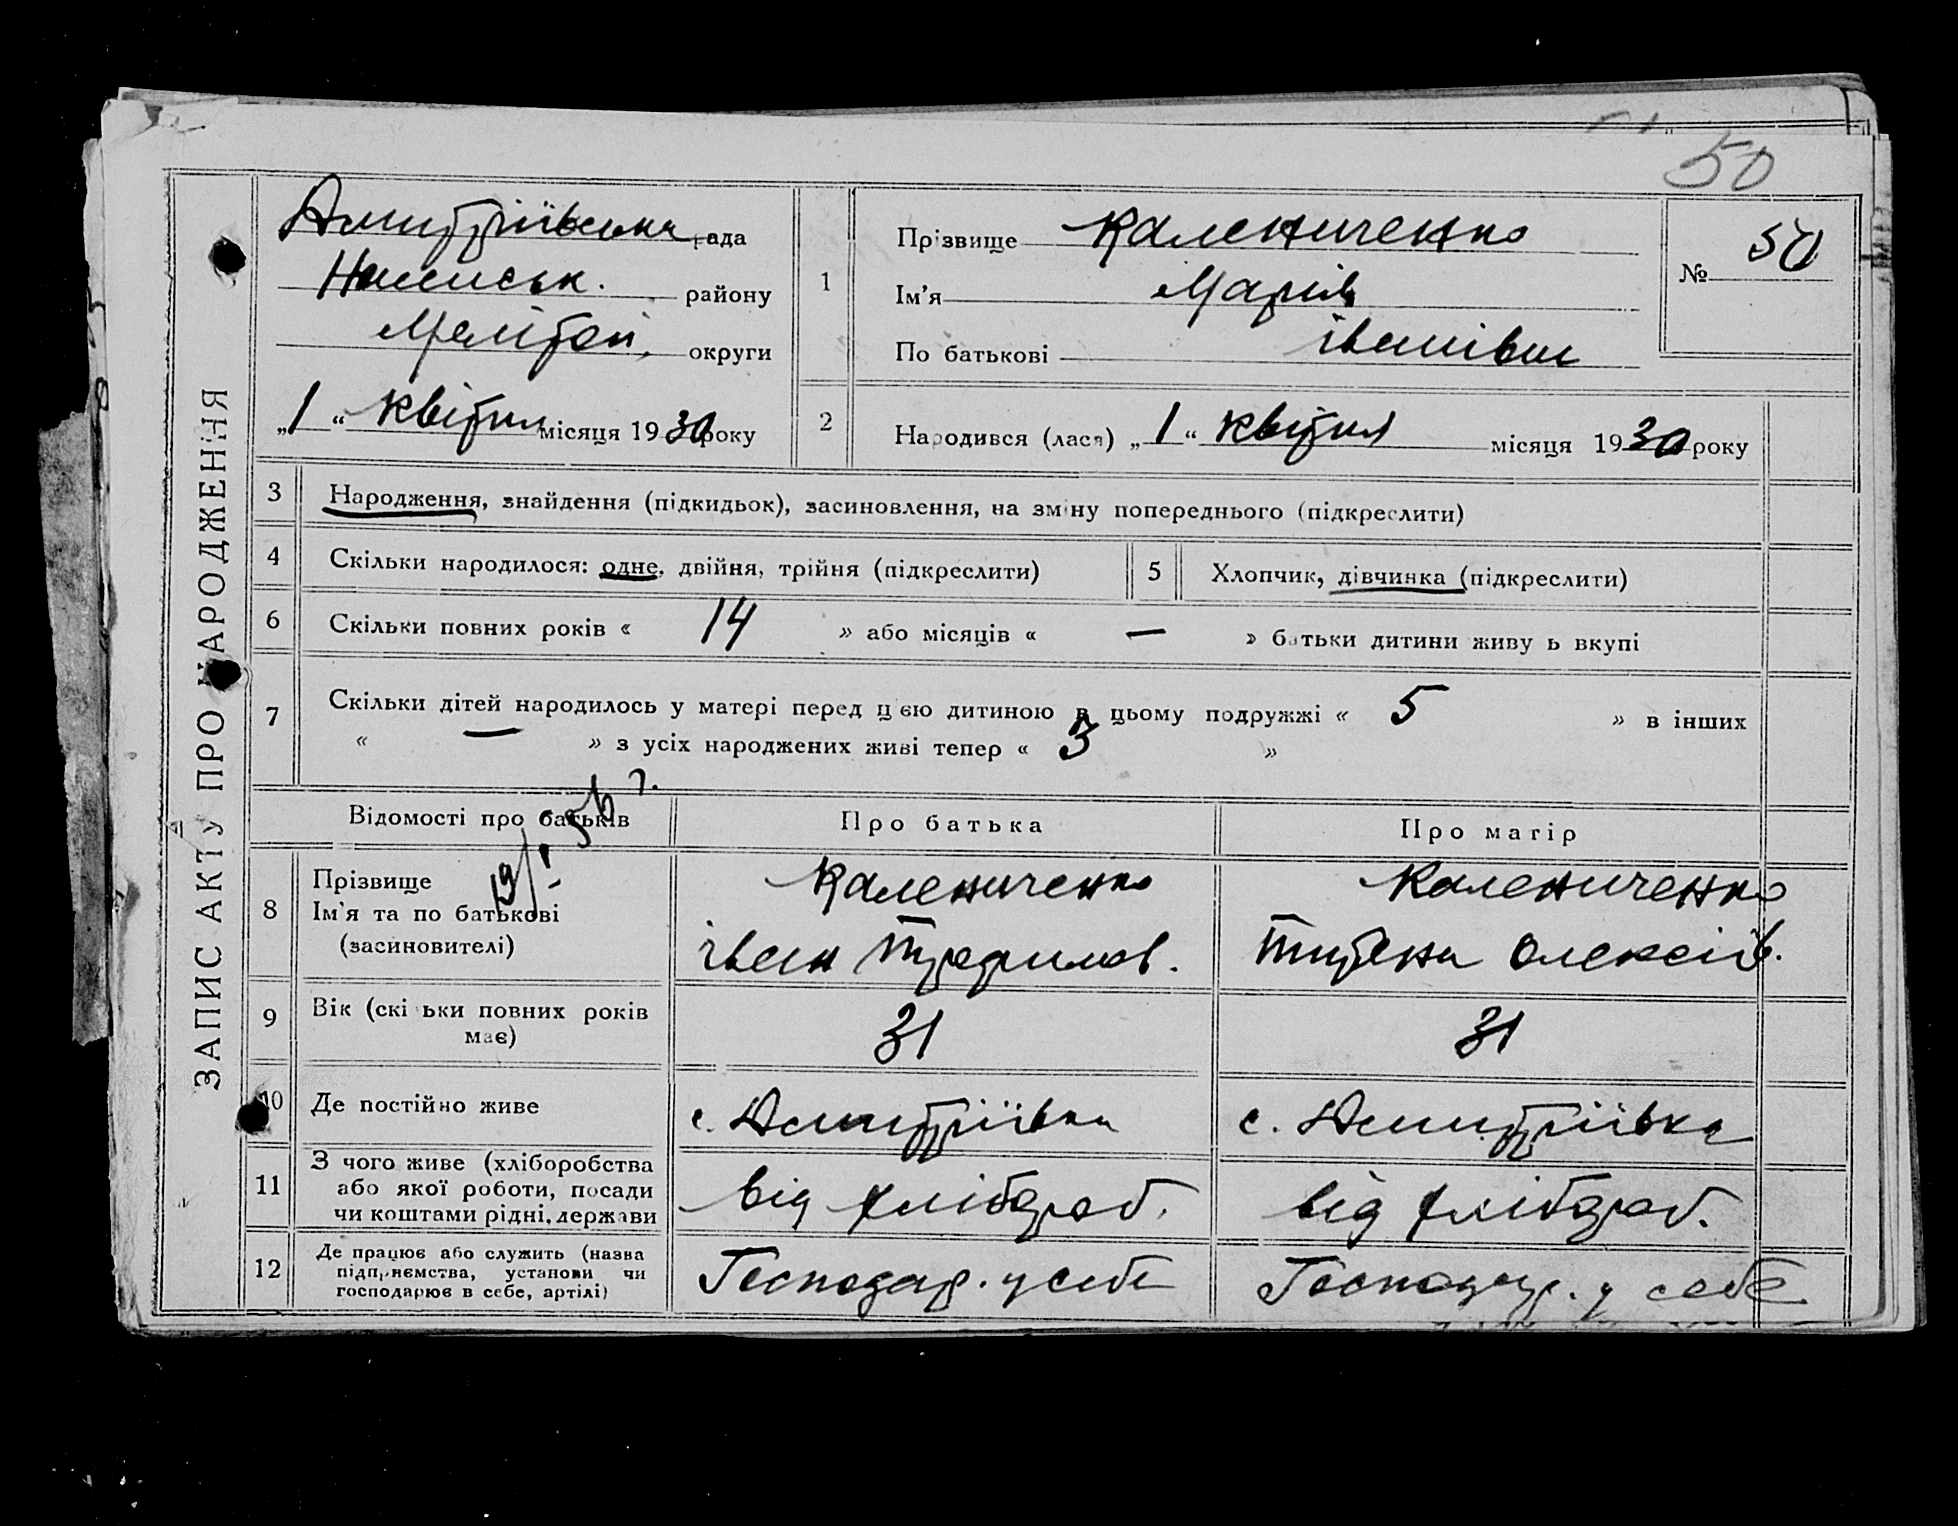 50
ЗАПИС АКТУ ПРО НАРОДЖЕННЯ
Дмитріївська рада
району
Мелітоп. округи
„1“ квітня місяця 1930 року
1
Прізвище Калениченко
Ім'я Марія
По батькові Іванівна
№ 50
2
Народився (лася) „1“ квітня місяця 1930 року
3 Народження, знайдення (підкидьок), засиновлення, на зміну попереднього (підкреслити)
4 Скільки народилося: одне, двійня, трійня (підкреслити)
5 Хлопчик, дівчинка (підкреслити)
6 Скільки повних років « 14 » або місяців « — » батьки дитини живуть вкупі
7 Скільки дітей народилось у матері перед цією дитиною в цьому подружжі « 5 » в інших
« — » з усіх народжених живі тепер « 3 »
Відомості про батьків
Про батька
Про матір
8
Прізвище
Ім'я та по батькові
(засиновителі)
Калениченко
Іван Трофимов.
Калениченко
Олексіїв.
9
Вік (скільки повних років
має)
31
31
10 Де постійно живе
с. Дмитріївка
с. Дмитріївка
11
З чого живе (хліборобства
або якої роботи, посади
чи коштами рідні, держави
від хлібороб.
від хлібороб.
12
Де працює або служить (назва
підприємства, установи чи
господарює в себе, артілі)
Господар. у себе
Господар. у себе